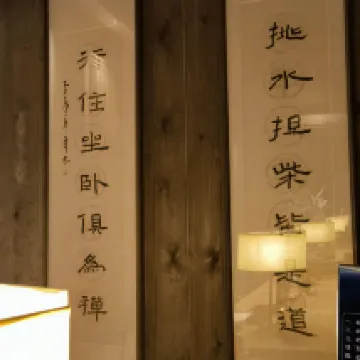 挑水担柴皆是道
行住坐卧俱為禅